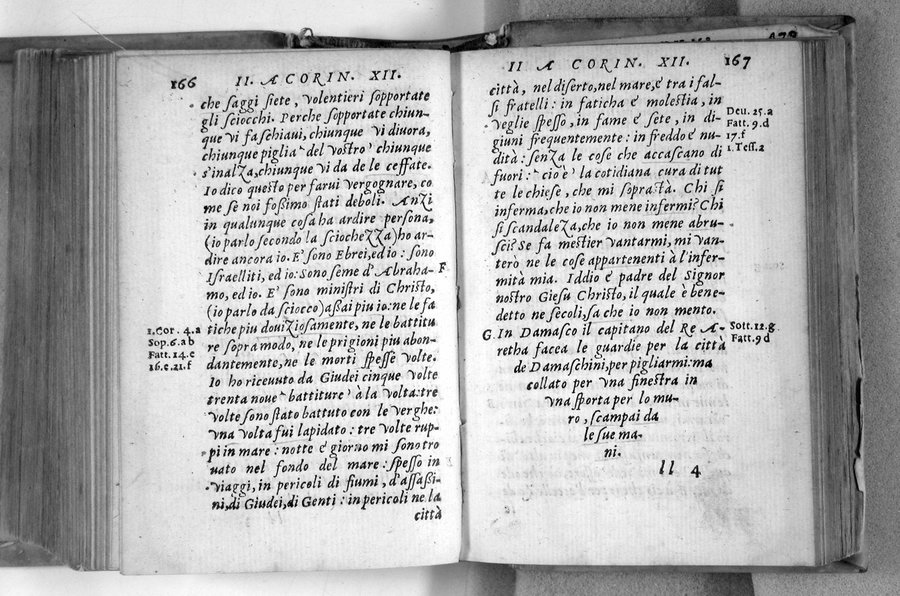 166 II. A CORIN. XII.
che saggi siete, volentieri sopportate
gli sciocchi. Perche sopportate chiun-
que vi fa schiaui, chiunque vi diuora,
chiunque piglia del vostro chiunque
s'inalza, chiunque vi da de le ceffate.
Io dico questo per farui vergognare, co
me se noi fossimo stati deboli. Anzi
in qualunque cosa ha ardire persona,
(io parlo secondo la sciochezza) ho ar-
dire ancora io. E' sono Ebrei, ed io: sono
Israelliti, ed io: Sono seme d'Abraha-
F
mo, ed io. E' sono ministri di Christo,
(io parlo da sciocco) assai piu io: ne le fa
tiche piu douiziosamente, ne le battitu
re sopra modo, ne le prigioni piu abon-
dantemente, ne le morti spesse volte.
Io ho riceuuto da Giudei cinque volte
trenta noue battiture à la volta: tre
volte sono stato battuto con le verghe:
vna volta fui lapidato: tre volte rup-
pi in mare: notte e giorno mi sono tro
uato nel fondo del mare: spesso in
viaggi, in pericoli di fiumi, d'assaßi-
ni, di Giudei, di Genti: in pericoli ne la
città
1. Cor. 4.a
Sop. 6.a b
Fatt. 14.c
16.e. 21.f
II A CORIN. XII. 167
città, nel diserto, nel mare, e tra i fal-
si fratelli: in faticha e molestia, in
veglie spesso, in fame e sete, in di-
giuni frequentemente: in freddo e nu-
dità: senza le cose che accascano di
fuori: cio è la cotidiana cura di tut
te le chiese, che mi soprastà. Chi si
inferma, che io non mene infermi? Chi
si scandaleza, che io non mene abru-
sci? Se fa mestier vantarmi, mi van-
terò ne le cose appartenenti à l'infer-
mità mia. Iddio e padre del Signor
nostro Giesu Christo, il quale è bene-
detto ne secoli, sa che io non mento.
G. In Damasco il capitano del Re A-
retha facea le guardie per la città
de Damaschini, per pigliarmi: ma
collato per vna finestra in
vna sporta per lo mu-
ro, scampai da
le sue ma-
ni.
ll 4
Deu. 25.a
Fatt. 9.d
17.f
1. Tess. 2
Sott. 12.g
Fatt. 9 d